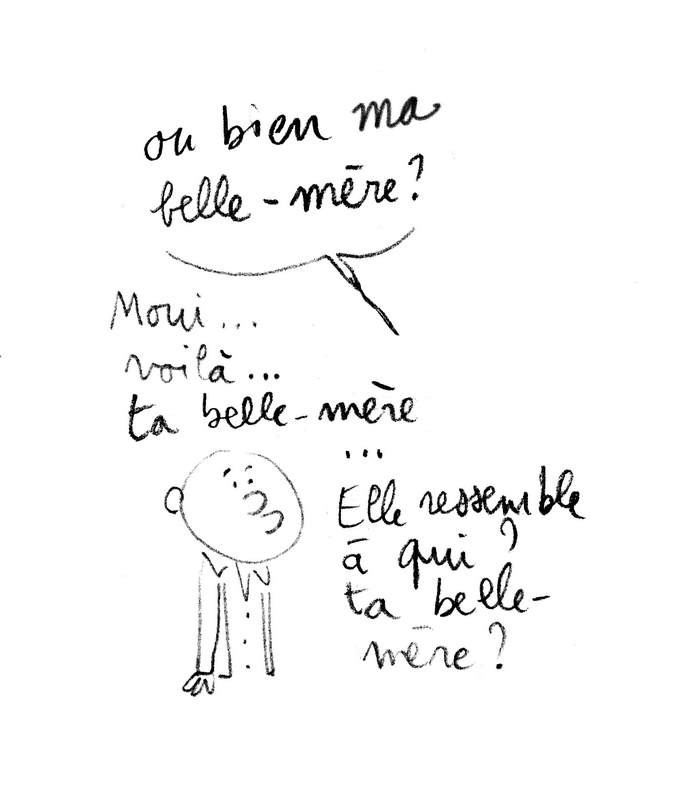 ou bien ma
belle-mère?
Moui...
voilà...
ta belle-mère
...
Elle ressemble
à qui?
ta belle-
mère?